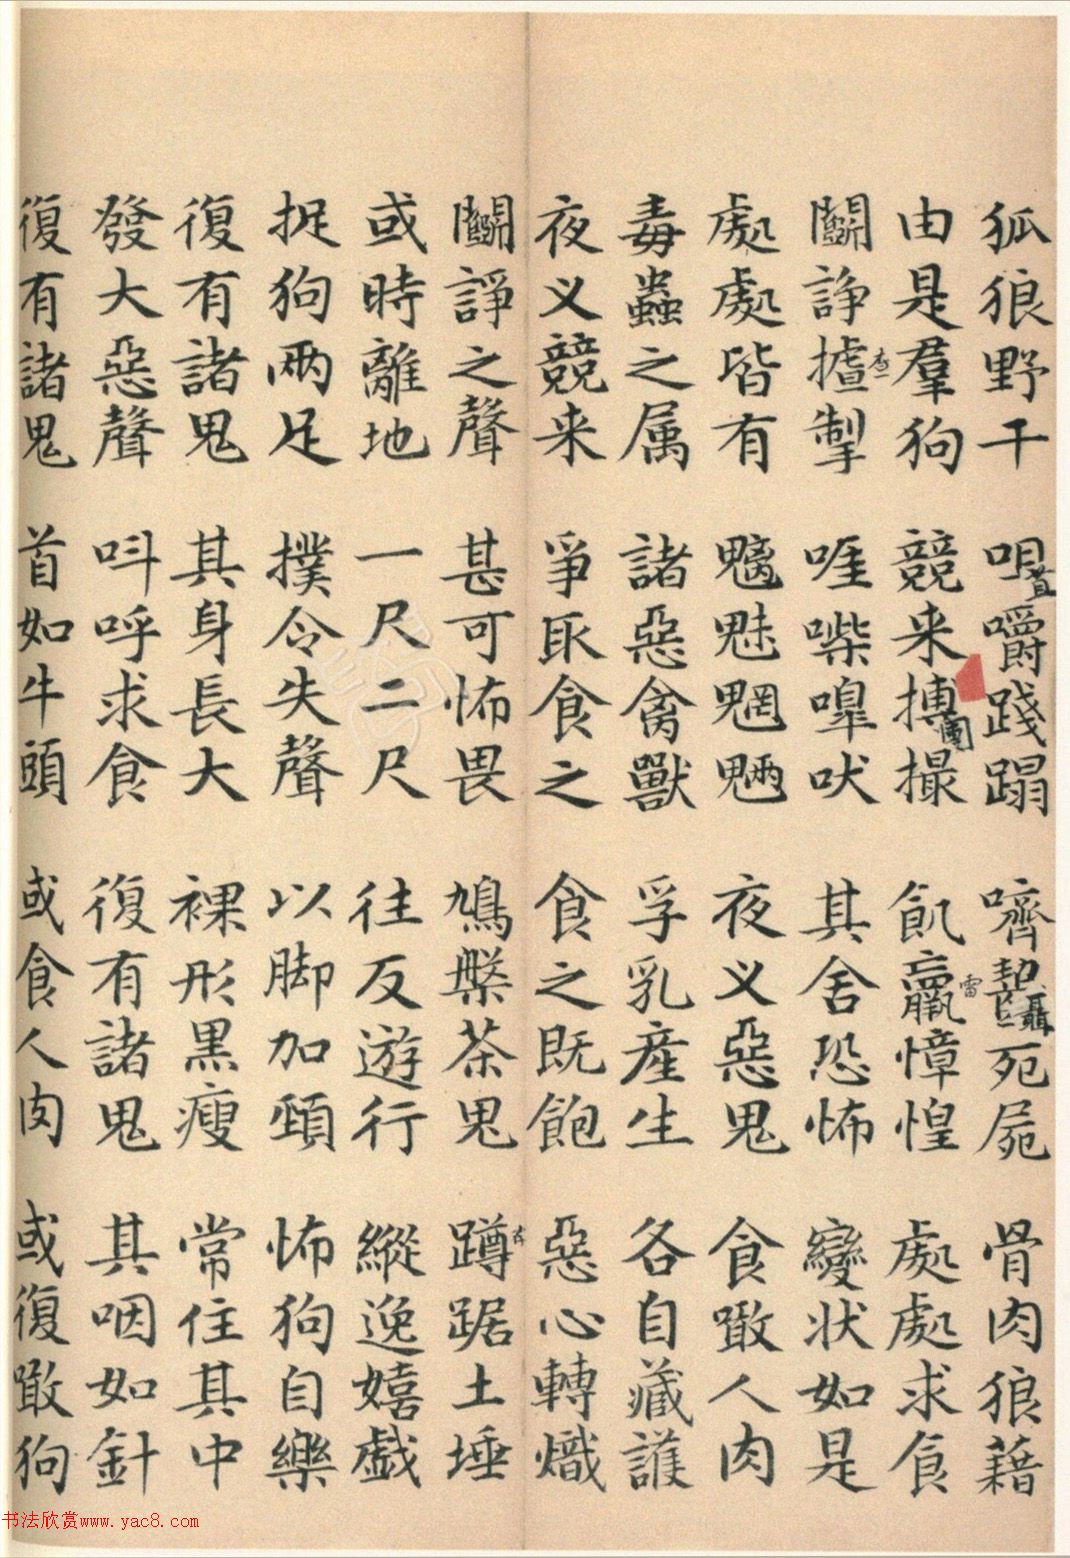 狐狼野干 咀嚼踐蹋 嚌齧死屍 骨肉狼藉
由是羣狗 競来搏撮 飢羸慞惶 處處求食
鬭諍摣掣 啀喍嘷吠 其舍恐怖 變状如是
處處皆有 魑魅魍魎 夜叉惡鬼 食噉人肉
毒蟲之属 諸惡禽獸 孚乳產生 各自藏護
夜叉競来 爭取食之 食之既飽 惡心轉熾
鬭諍之聲 甚可怖畏 鳩槃茶鬼 蹲踞土埵
或時離地 一尺二尺 往反遊行 縱逸嬉戯
捉狗兩足 撲令失聲 以脚加頸 怖狗自樂
復有諸鬼 其身長大 裸形黒瘦 常住其中
發大惡聲 叫呼求食 復有諸鬼 其咽如針
復有諸鬼 首如牛頭 或食人肉 或復噉狗
書法欣赏www.yac8.com